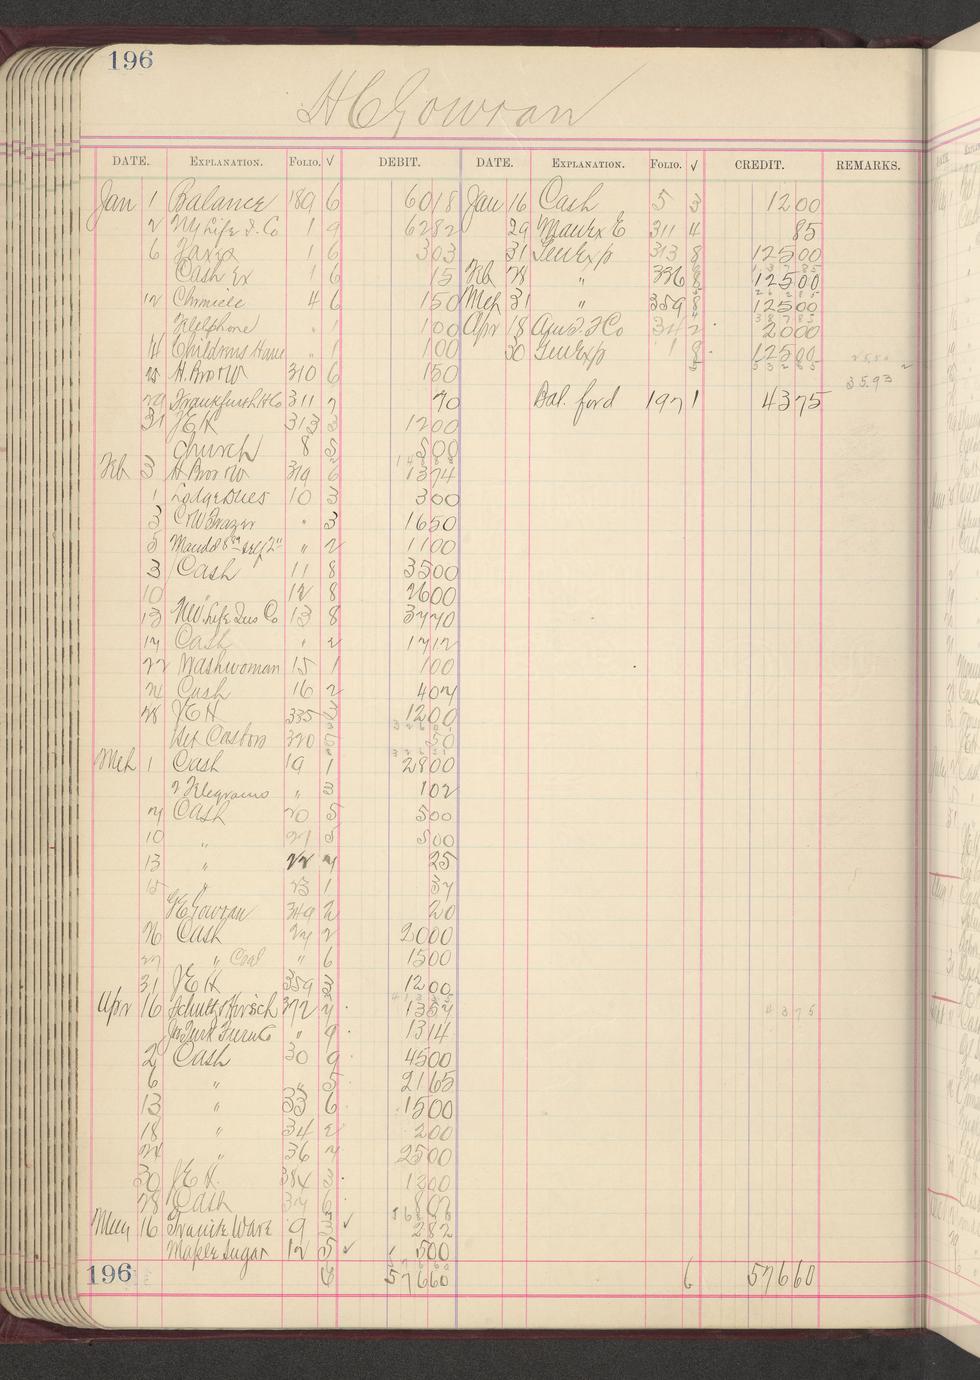 196
H C Gowran
DATE. EXPLANATION. FOLIO. √ DEBIT. DATE. EXPLANATION. FOLIO. √ CREDIT. REMARKS.
Jan 1 Balance 189 6 6018 Jan 16 Cash 5 3 1200
2 NY Life I. Co 1 9 6282 29 311 4 85
6 Taxes 1 6 303 31 GenExp 313 8 12500
Cash Ex 1 6 15 Feb 28 " 336 8 12500
12 Chronicle 4 6 150 Mch 31 " 359 8 12500
Telephone " 1 100 Apr 18 Co 342 2000
14 Childrens Home " 1 100 30 GenExp 1 8 12500
25 H. Bro W 310 6 150
29 311 7 70 Bal. ford 197 1 4375
31 J E H 313 3 1200
Church 8 5 500
Feb 3 H Bro W 319 6 1374
1 Lodge Dues 10 3 300
3 C W Frazer " 3 1650
5 Maud 8 self 2 " 2 1100
3 Cash 11 8 3500
10 " 12 8 2600
13 New. Life Ins Co 13 8 3770
17 Cash " 2 1712
22 Washwoman 15 1 100
24 Cash 16 2 407
28 J E H 335 3 1200
Set Castors 320 5 50
Mch 1 Cash 19 1 2800
2 Telegrams " 3 102
7 Cash 20 5 500
10 " 21 5 500
13 " 22 7 25
15 " 23 1 37
J E Gowran 349 2 20
26 Cash 27 2 2000
27 " Coal " 6 1500
31 J E H 359 3 1200
Apr 16 Schultz & Hirsch 372 7 1357
Furn Co " 9 1314
2 Cash 30 9 4500
6 " " 5 2165
13 " 33 6 1500
18 " 34 2 200
24 " 36 7 2500
30 J E H. 384 3 1200
28 Cash 37 6
May 16 Granite Ware 9 3 √ 282
Maple Sugar 12 5 √ 500
196 6 57660 6 57660